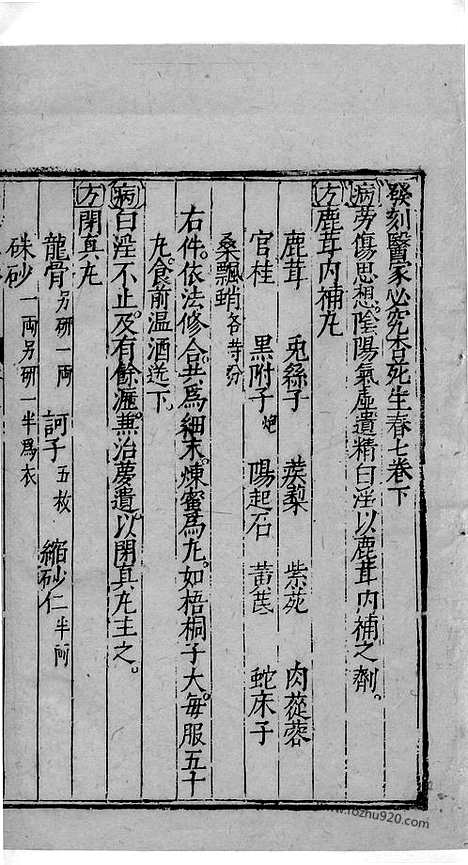 發刻醫家必究杏苑生春七卷下
病勞傷思想陰陽氣虛遺精白淫以鹿茸内補之劑。
方鹿茸内補丸
鹿茸 兎絲子 蒺藜 紫菀 肉蓯蓉
官桂 黑附子炮 陽起石 黃芪 蛇床子
桑飄蛸各等分
右件。依法修合。共爲細末。煉蜜爲丸。如梧桐子大。每服五十
丸。食前温酒送下。
病白淫不止。及有餘瀝。兼治夢遺。以閉真丸主之。
方閉真丸
龍骨另研一兩 訶子五枚 縮砂仁半兩
硃砂一兩另研一半爲衣
www.fozhu920.com